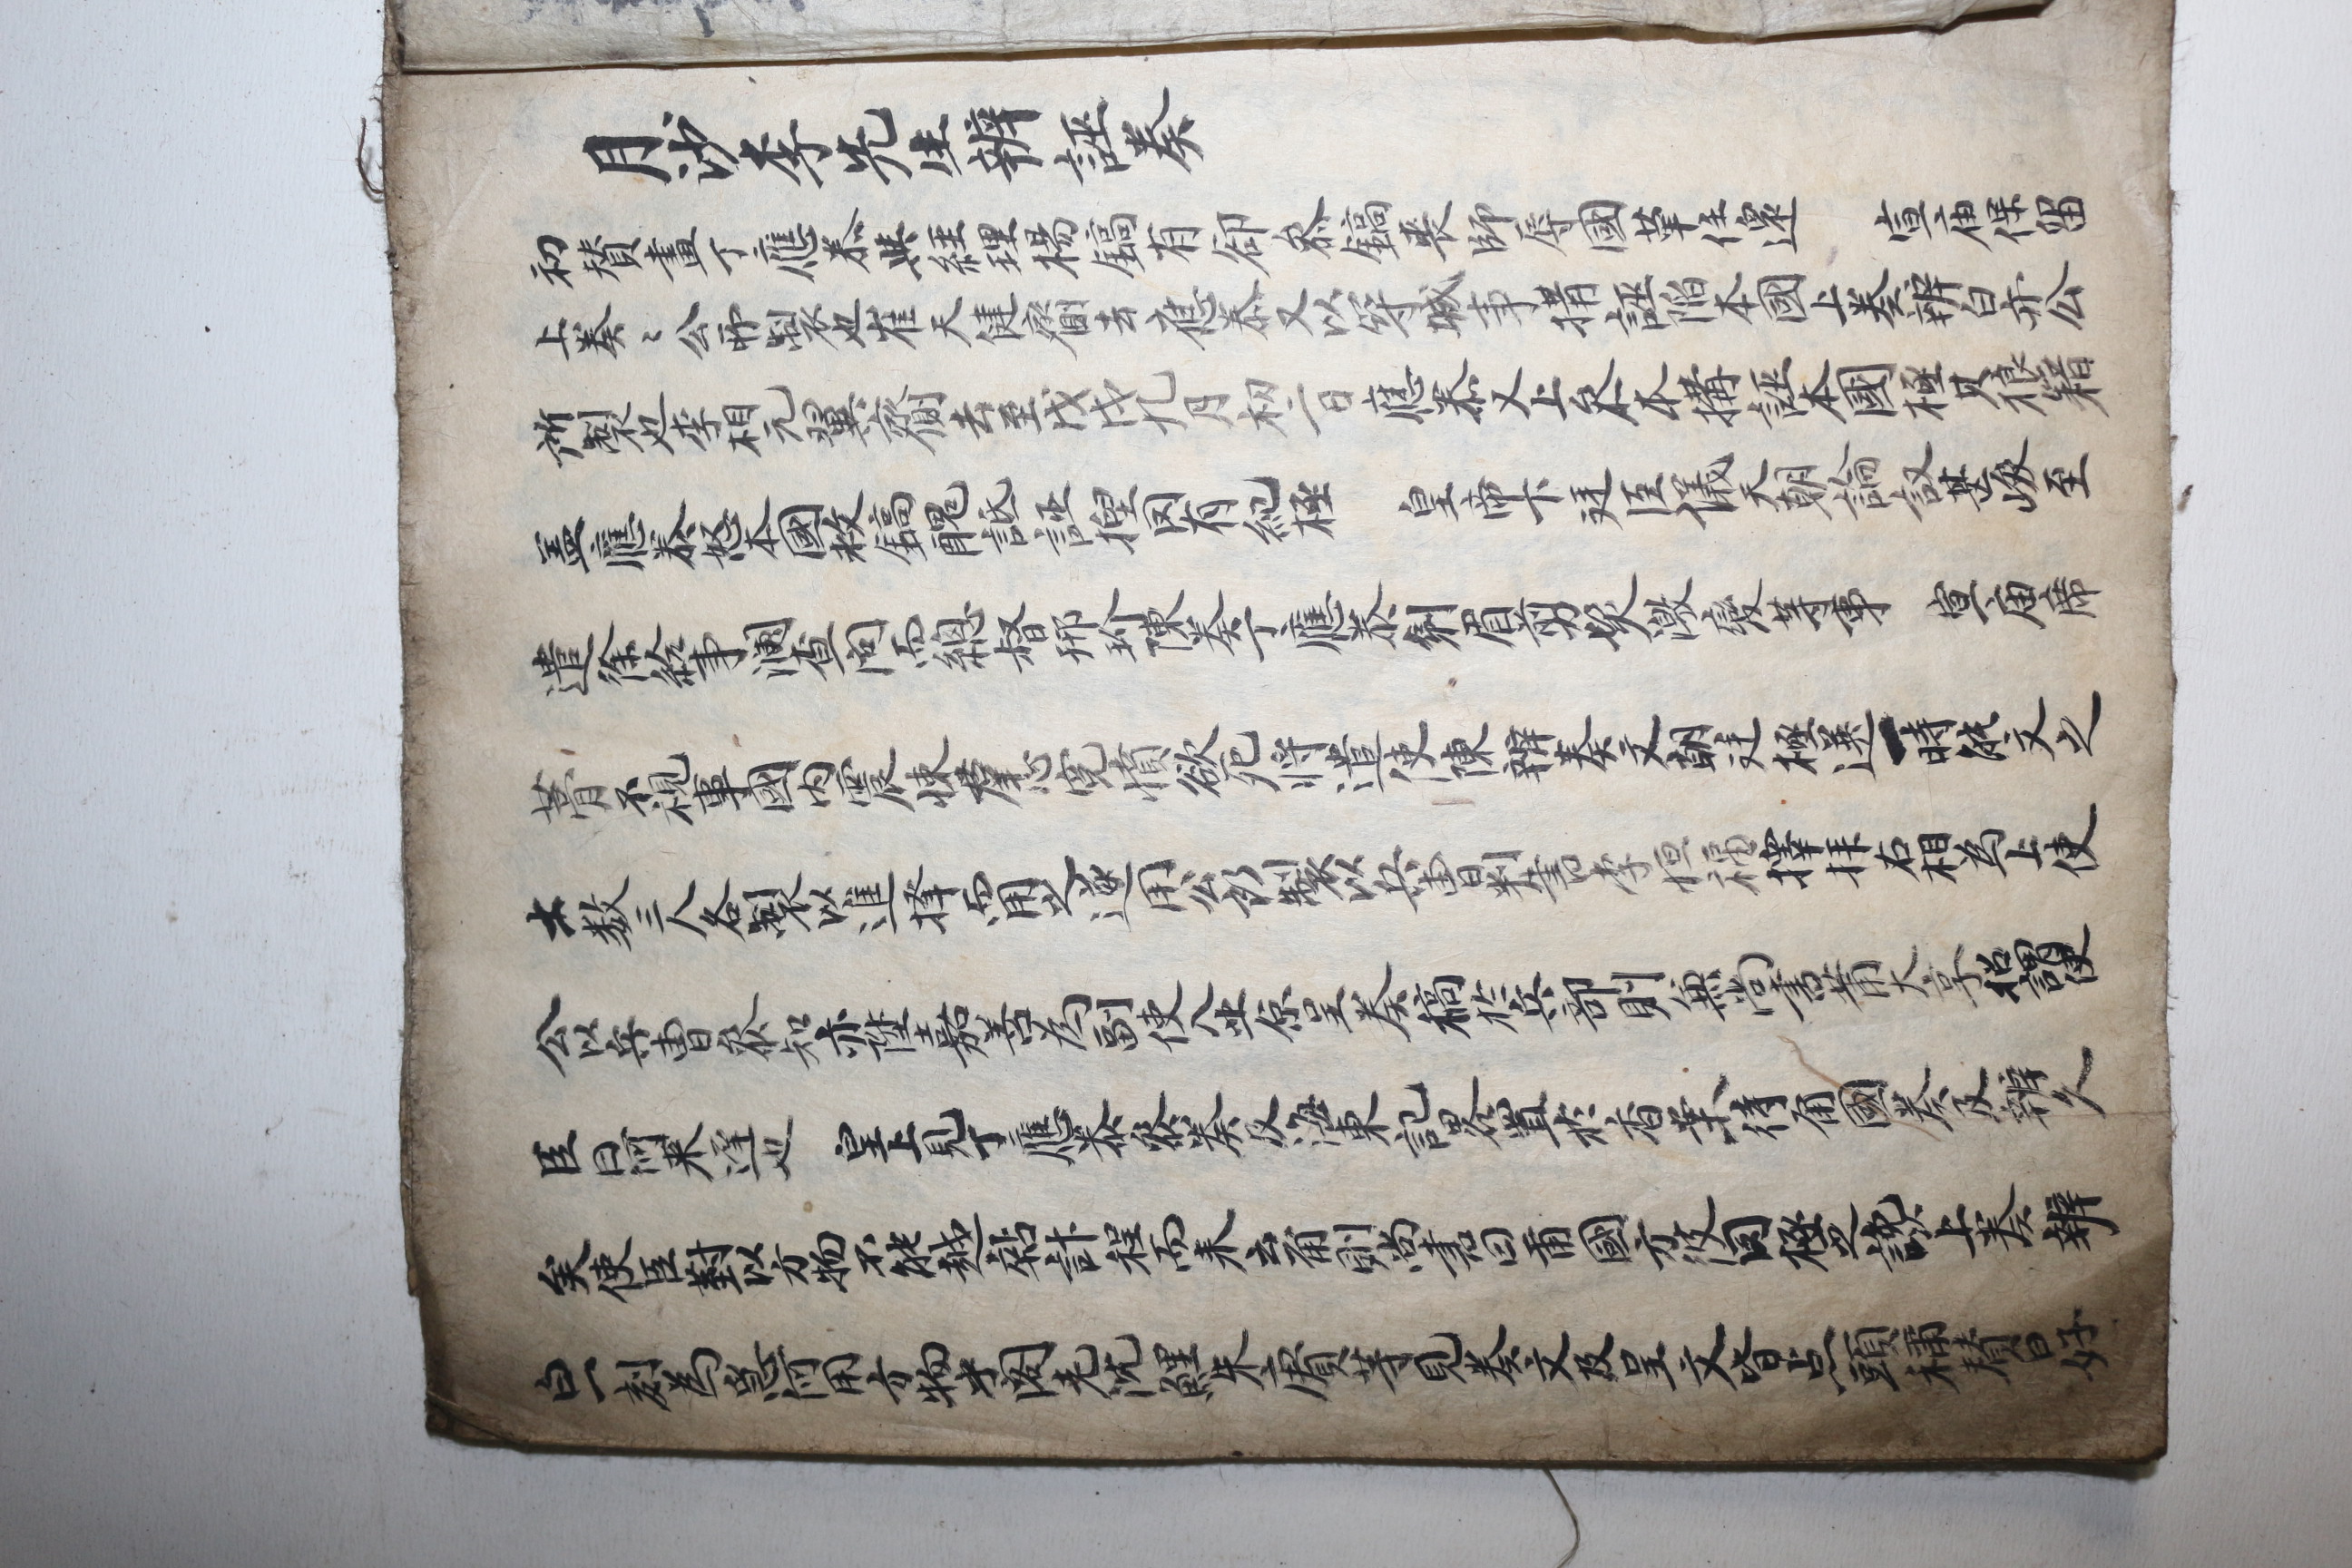 月沙李先生辨誣奏
初贊畫丁應泰與經理楊鎬有郤叅鎬丧師辱國革任還 宣庙保留
上奏〻公所製也崔天健齎去應泰又以築城事構誣陷本國上奏辨白亦公
所製也李相元翼齎去至戊戌九月初二日應泰又上叅本構誣本國極其狼籍
盖應泰怒本國救鎬醜詆誣揑罔有紀極 皇帝下廷臣儀天朝論议甚峻至
遣徐給事瀾查问而總督邢玠陳奏丁應泰剃眉剪髮激變等事 宣庙席
藁不視事國内震悚羣心寃憤欲死将遣使陳辨奏文朝廷極選一時能文之
士数三人各製以進擇而用之遂用公所製以兵曹判書李恒福擢拜右相為上使
公以兵曹叅知亦陞嘉善為副使入北京呈奏稿扵兵部則兼尚書蕭大亨招謂使
臣曰何来遅也 皇上見丁應泰叅奏及海東記畧置扵香案待甭國奏及辨久
矣使臣對以方物不能越站計程而来云甭則尚書曰甭國方彼罔極之讒上奏辨
白一刻為急何用方物乎阁老沈鯉朱賡等見奏文及呈文皆点頭稱賛曰好